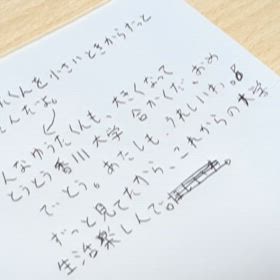 くんを小さいときからだっと
とんだーよ。
んなゆうたくんも、大きくなって
とうとう香川大学 合かくだ。おめ
でとう。あたしも、うれしいわ。
ずっと見てたから、これからの大学
生活楽しんで。